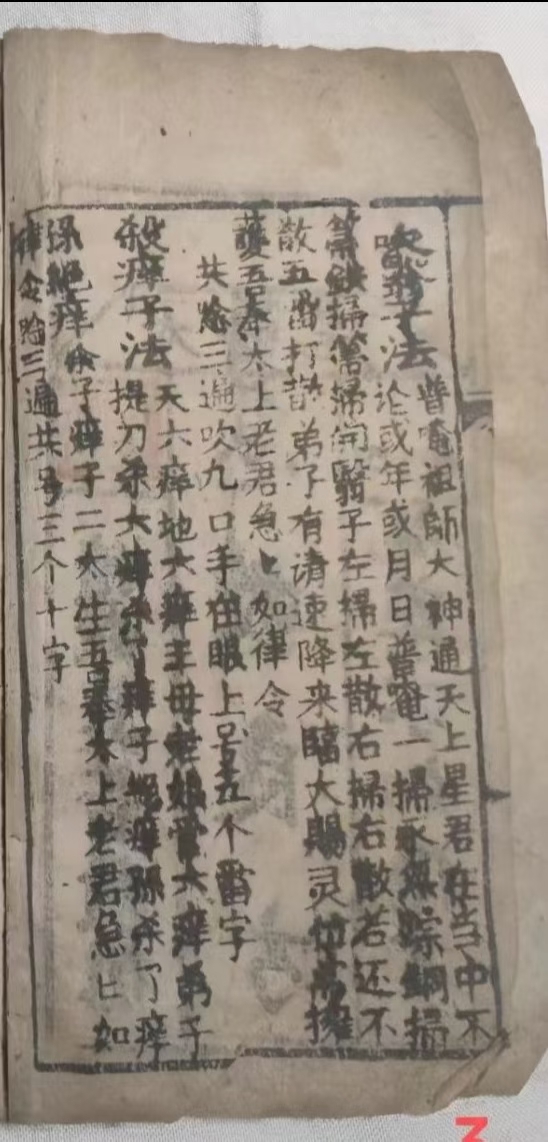 吹翳子法
普唵祖師大神通天上星君在当中不
论或年或月日普唵一掃永無踪銅掃
箒鉄掃箒掃開翳子左掃左散右掃右散若还不
散五雷打散弟子有请速降来臨大賜灵
護吾奉太上老君急匕如律令
共念三遍吹九口手在眼上号五个雷字
殺痒子法
天六痒地大痒王母老娘管六痒弟子
提刀杀大痒杀了痒子絕痒孫杀了痒
孫絕痒
子痒子二太生吾奉太上老君急匕如
律令念三遍共号三个十字
3